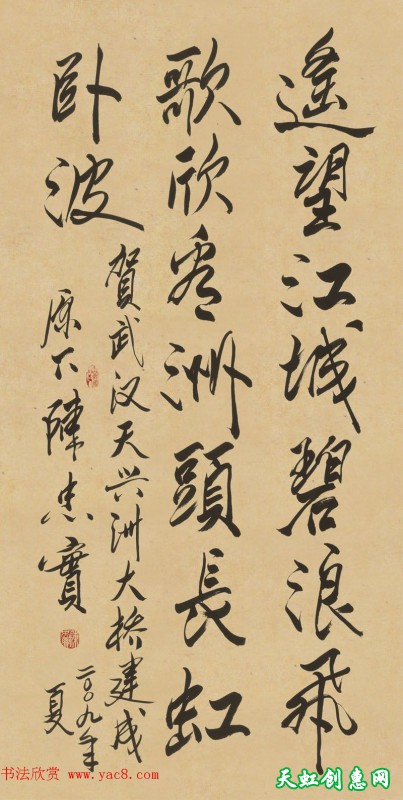 遙望江城碧浪飛
歌欣看洲頭長虹
卧波
賀武汉天兴洲大桥建成
二〇〇九年
夏
原下陳忠實
书法欣赏 www.yac8.com
天虹创惠网